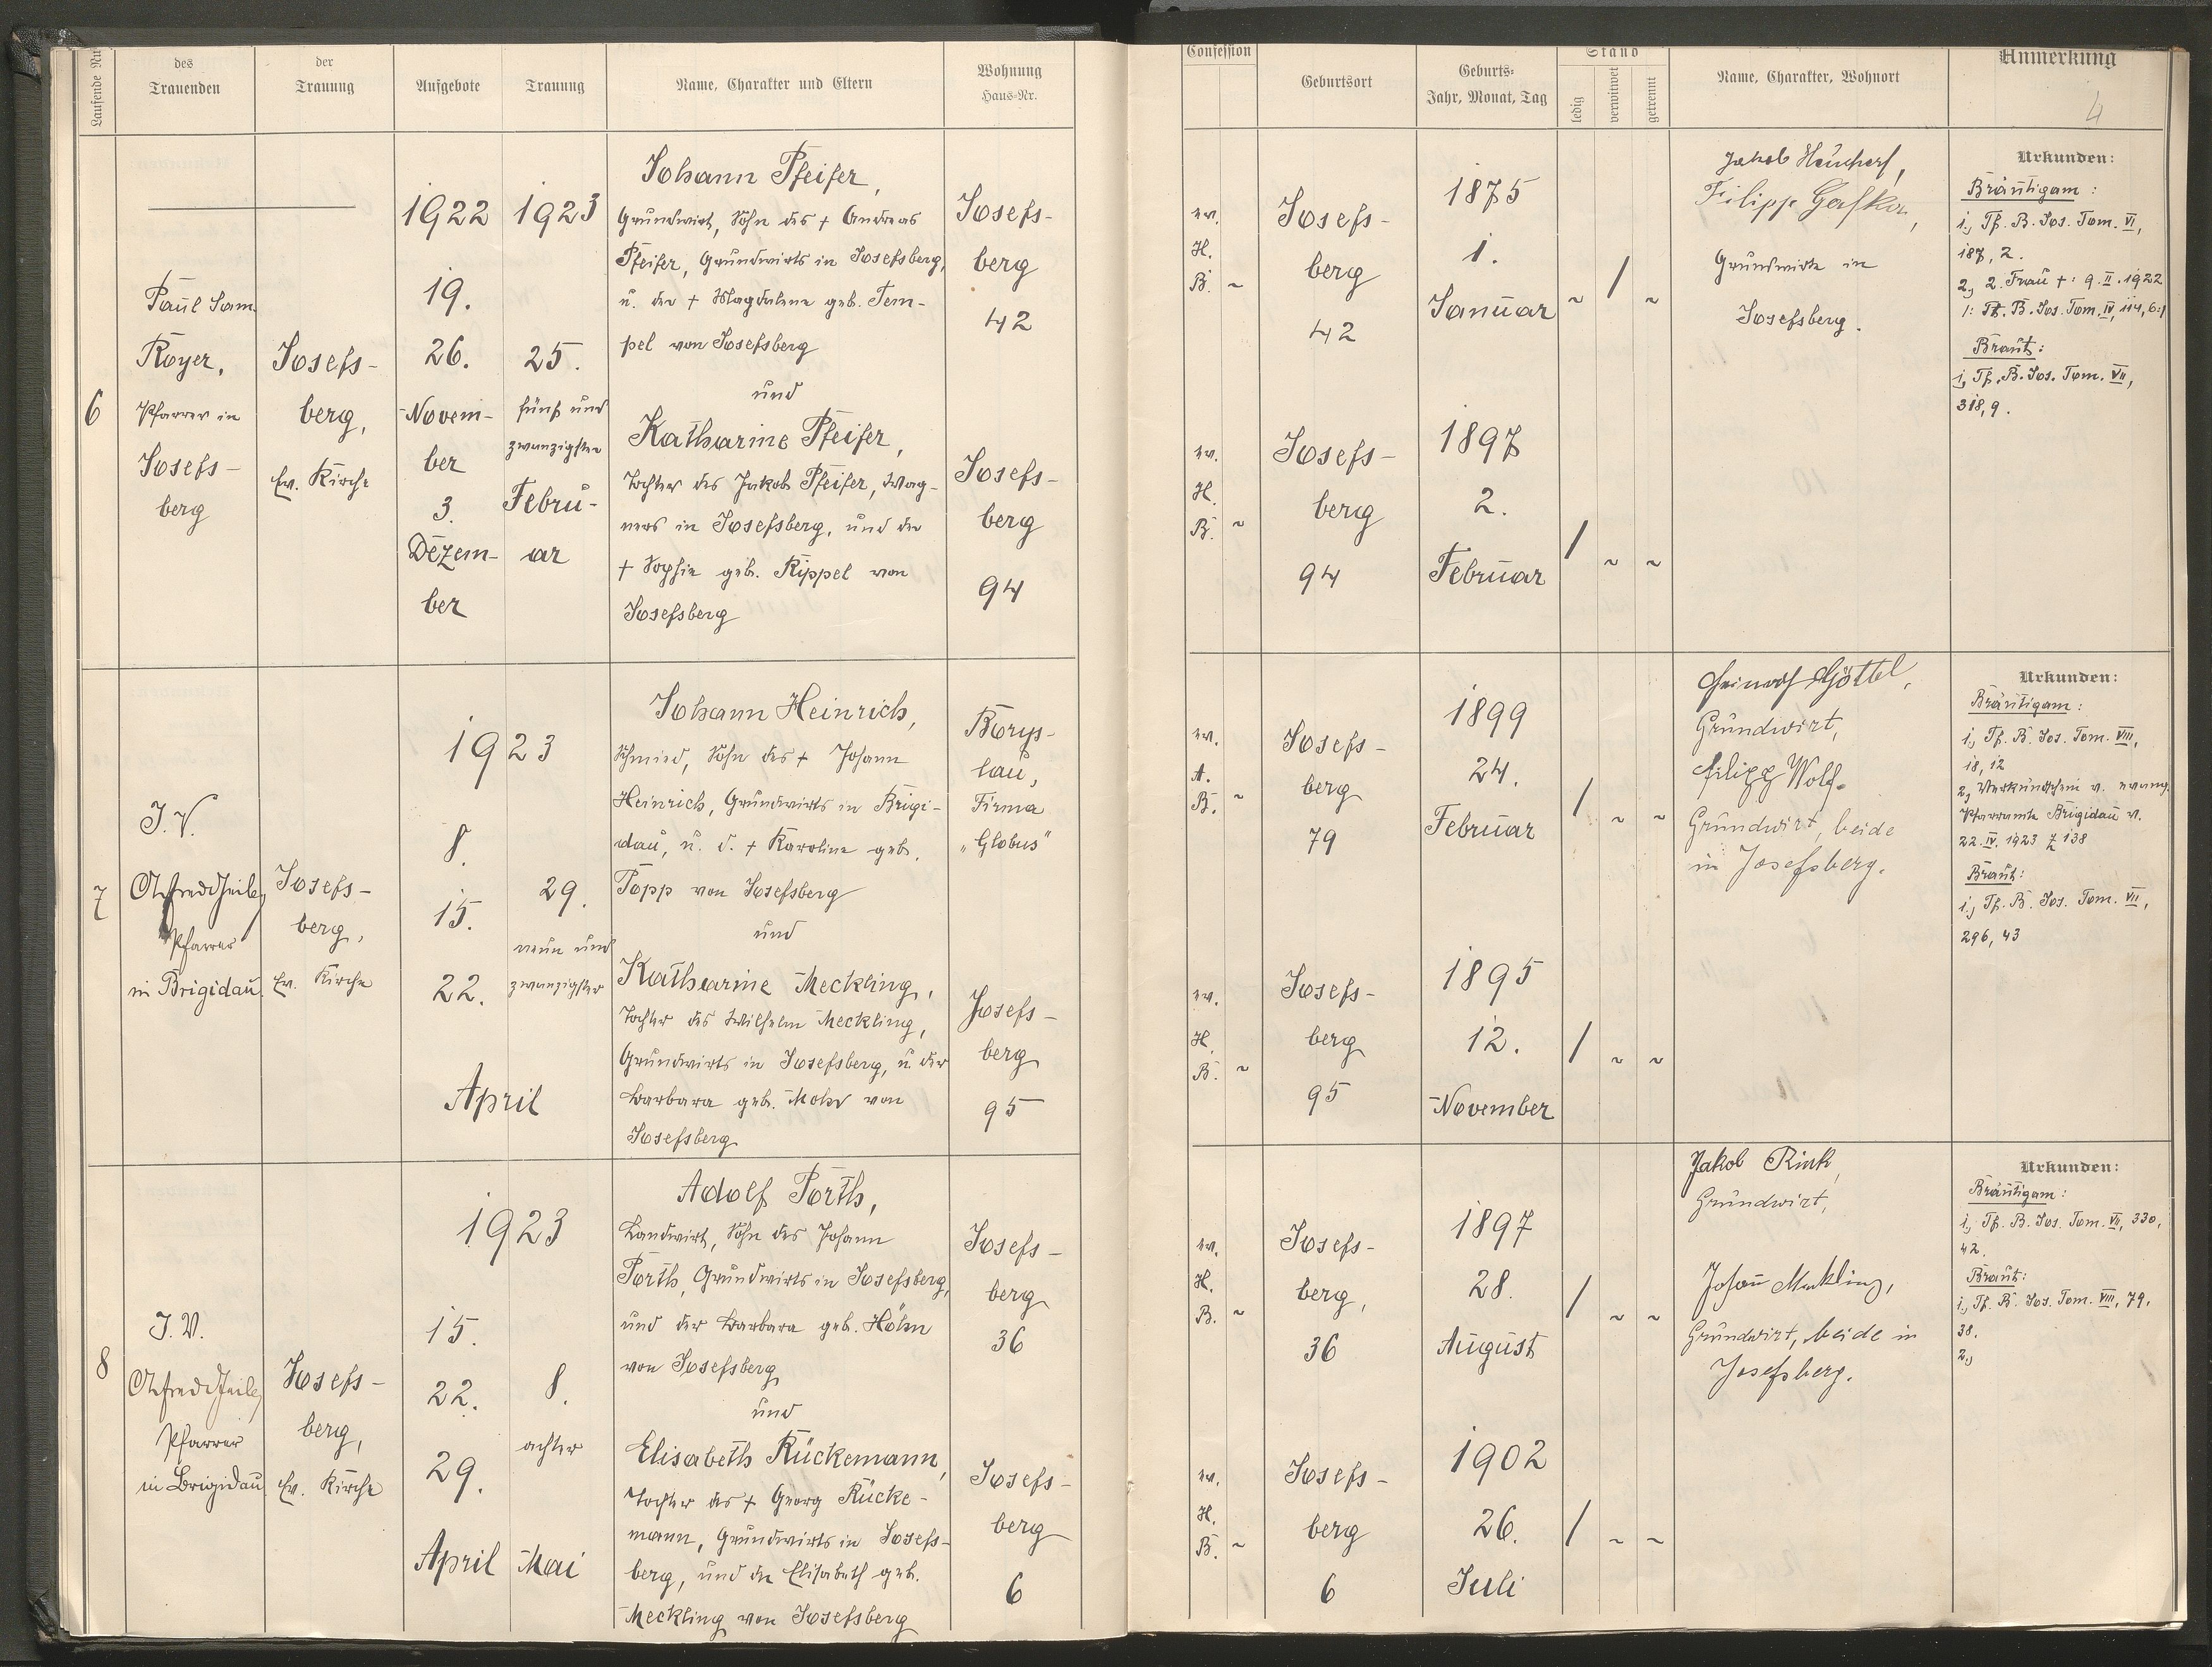 Laufende Nr
des
Trauenden
der
Trauung
Aufgebote
Trauung
Name, Charakter und Eltern
Wohnung
Haus-Nr.
Confession
Geburtsort
Geburts-
Jahr, Monat, Tag
Stand
ledig
verwitwet
getrennt
Name, Charakter, Wohnort
Anmerkung
4
6
Paul Sam.
Royer,
Pfarrer in
Josefs-
berg
Josefs-
berg,
Ev. Kirche
1922
19.
26.
Novem-
ber
3.
Dezem-
ber
1923
25.
fünf und
zwanzigster
Febru-
ar
Johann Pfeifer,
Grundwirt, Sohn des + Andreas
Pfeifer, Grundwirts in Josefsberg,
u. der + Magdalena geb. Tem-
pel von Josefsberg
und
Katharine Pfeifer,
Tochter des Jakob Pfeifer, Wag-
ners in Josefsberg, und der
+ Sophie geb. Rippel von
Josefsberg
Josefs-
berg
42
Josefs-
berg
94
ev.
H.
B. ~
Josefs-
berg
42
1875
1.
Januar
~ / ~
ev.
H.
B. ~
Josefs-
berg
94
1897
2.
Februar
/ ~ ~
Jakob
Filipp
Grundwirte in
Josefsberg.
Urkunden:
Bräutigam:
1., Tf. B. Jos. Tom. VI,
187, 2.
2., 2. Frau +: 9. II. 1922
/: Tt. B. Jos. Tom. IV, 114, 6:/
Braut:
1., Tf. B. Jos. Tom. VII,
318, 9.
7
J. V.
Alfred
Pfarrer
in Brigidau
Josefs-
berg,
Ev. Kirche
1923
8.
15.
22.
April
29.
neun und
zwanzigster
Johann Heinrich,
Schmied, Sohn des + Johann
Heinrich, Grundwirts in Brigi-
dau, u. d. + Karoline geb.
Popp von Josefsberg
und
Katharine Meckling,
Tochter des Wilhelm Meckling,
Grundwirts in Josefsberg, u. der
Barbara geb. Mohr von
Josefsberg
Borys-
lau,
Firma
„Globus“
Josefs-
berg
95
ev.
A.
B. ~
Josefs-
berg
79
1899
24.
Februar
/ ~ ~
ev.
H.
B. ~
Josefs-
berg
95
1895
12.
November
/ ~ ~
Heinrich Göttel,
Grundwirt,
Filipp Wolf.
Grundwirt, beide
in Josefsberg.
Urkunden:
Bräutigam:
1., Tf. B. Jos. Tom. VIII,
18, 12
2., Verkündschein v. evang.
Pfarramte Brigidau v.
22. IV. 1923 Z 138
Braut:
1., Tf. B. Jos. Tom. VII,
296, 43
8
J. V.
Alfred
Pfarrer
in Brigidau
Josefs-
berg,
Ev. Kirche
1923
15.
22.
29.
April
8.
achter
Mai
Adolf Porth,
Landwirt, Sohn des Johann
Porth, Grundwirts in Josefsberg,
und der Barbara geb. Höhn
von Josefsberg
und
Elisabeth Rückemann,
Tochter des + Georg Rücke-
mann, Grundwirts in Josefs-
berg, und der Elisabeth geb.
Meckling von Josefsberg
Josefs-
berg
36
Josefs-
berg
6
ev.
H.
B. ~
Josefs-
berg,
36
1897
28.
August
/ ~ ~
ev.
H.
B. ~
Josefs-
berg
6
1902
26.
Juli
/ ~ ~
Jakob Rink,
Grundwirt,
Johann Meckling,
Grundwirt, beide in
Josefsberg.
Urkunden:
Bräutigam:
1., Tf. B. Jos. Tom. VII, 330,
42.
Braut:
1., Tf. B. Jos. Tom. VIII, 79,
38.
2.,